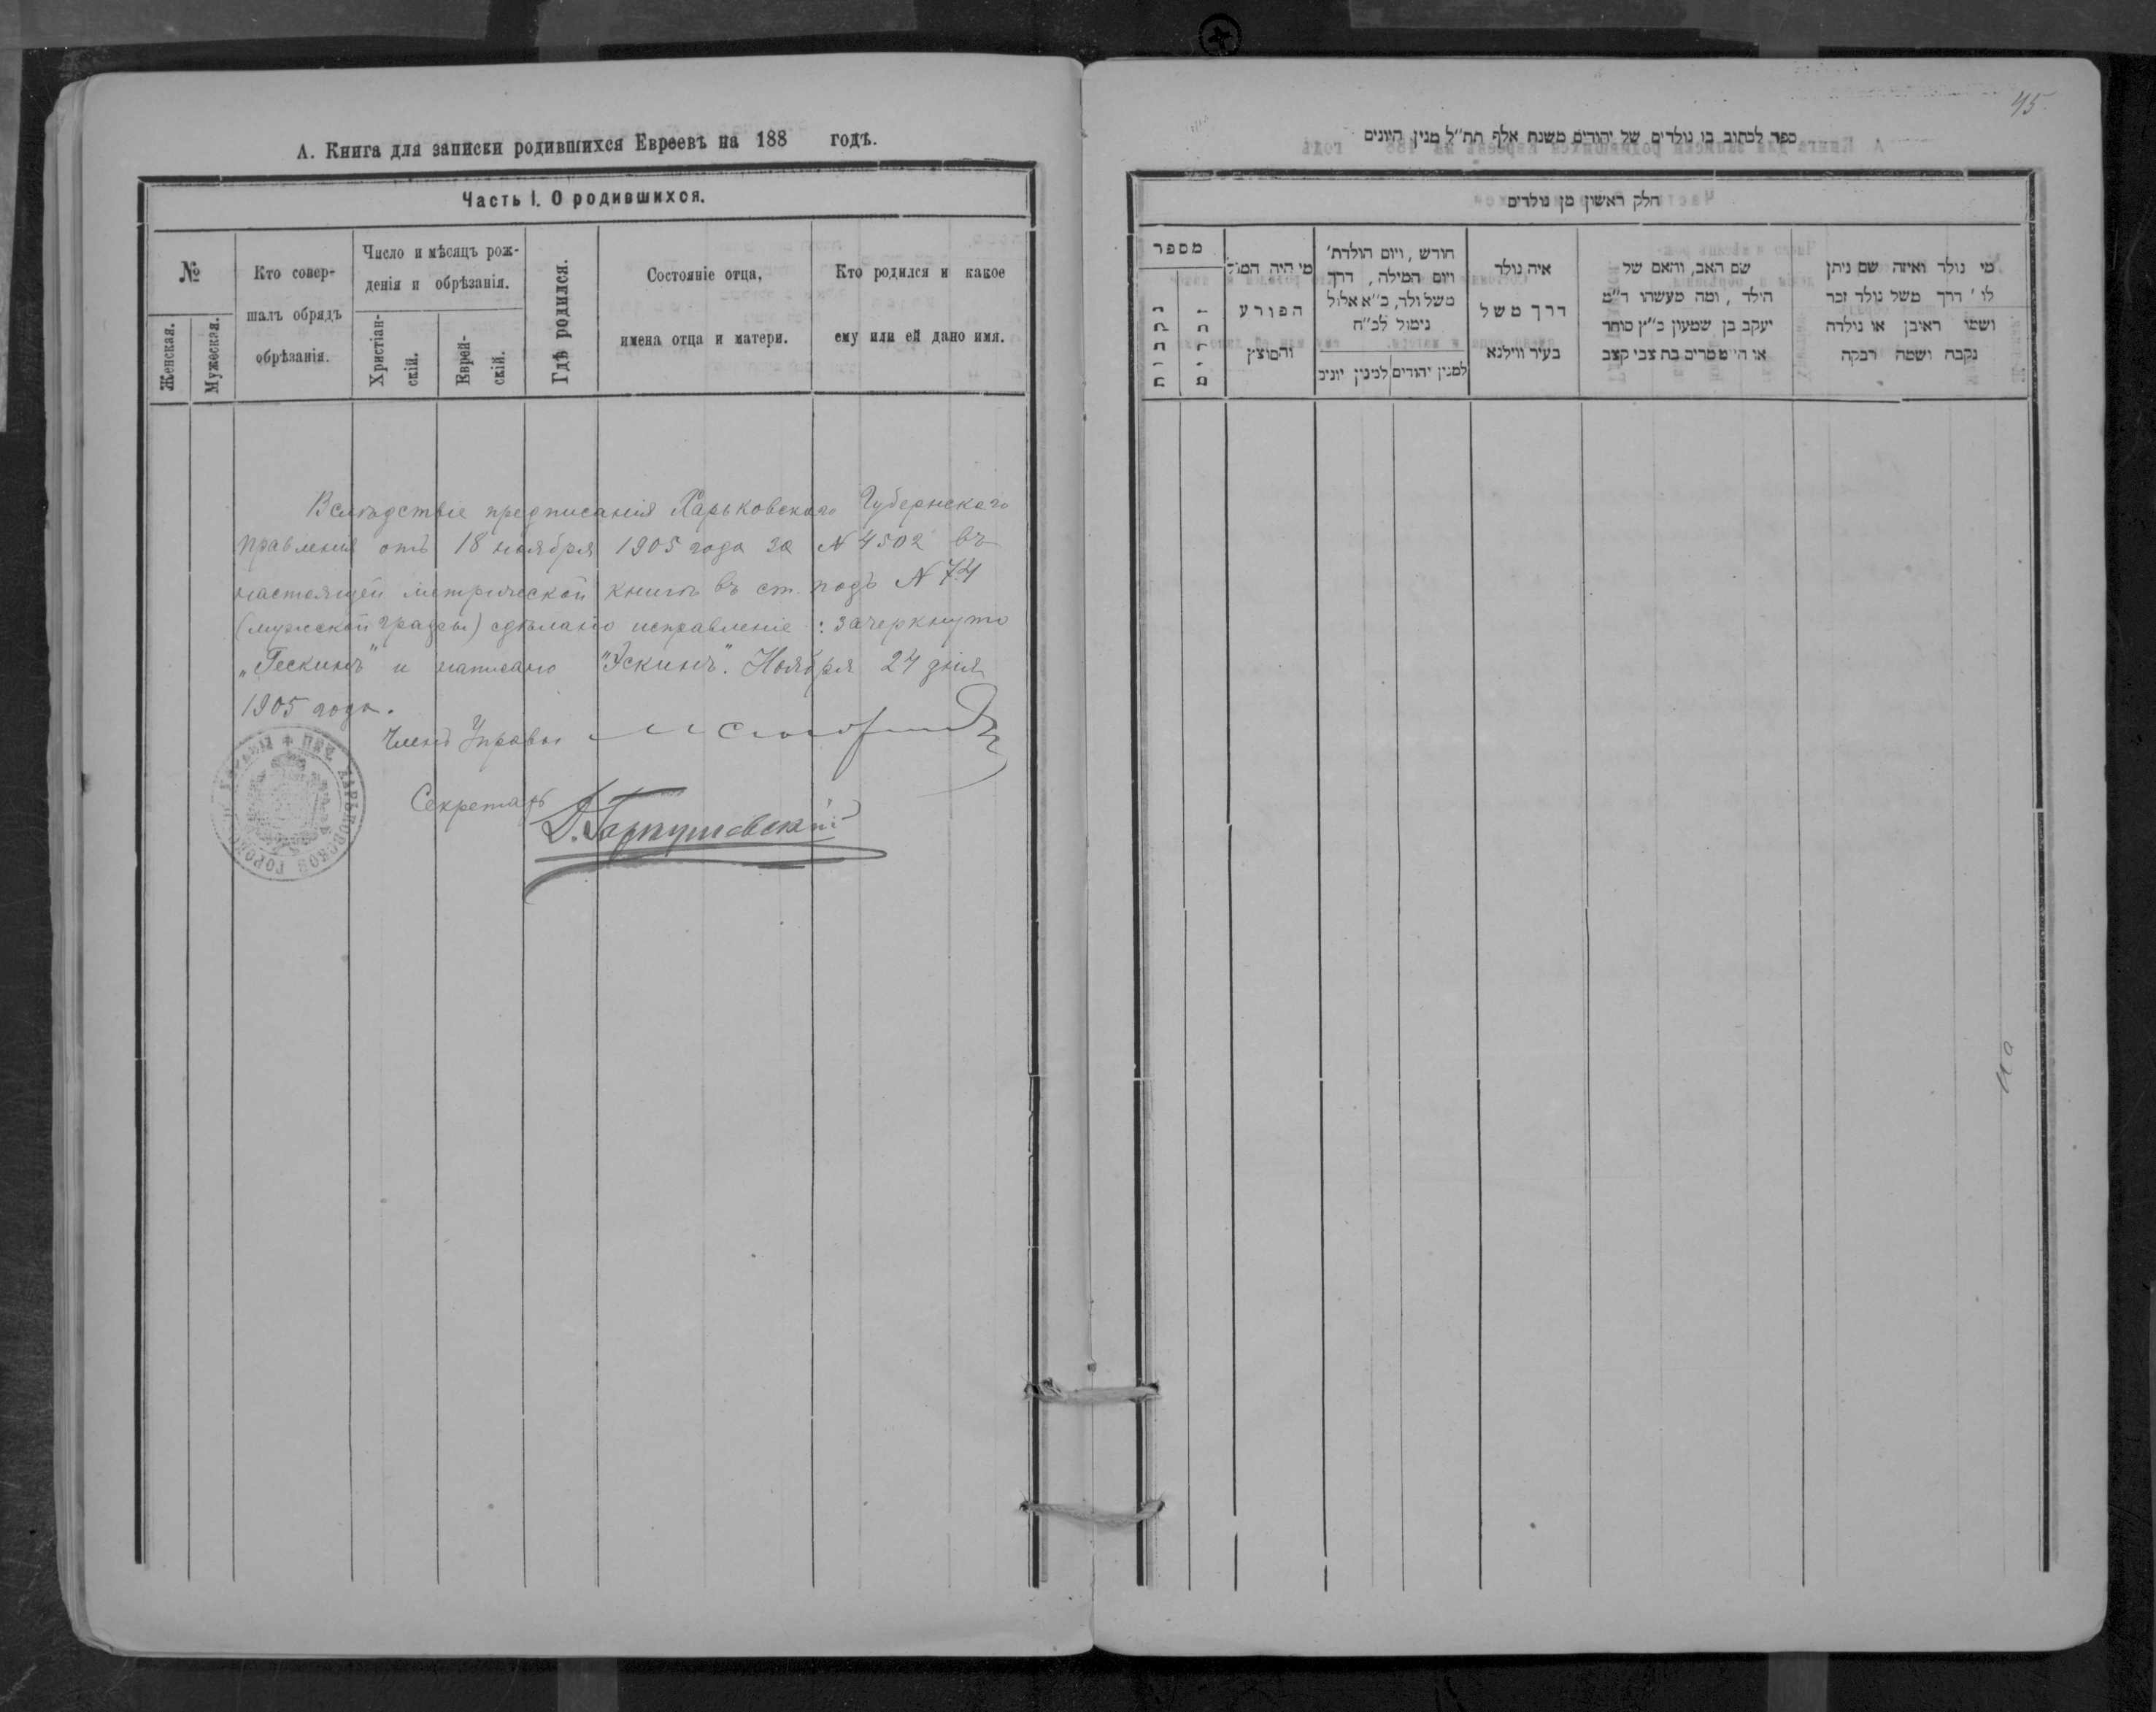 А. Книга для записки родившихся Евреевъ на 188 годъ.
Часть I. О родившихся.
№
Женская.
Мужеская.
Кто совер-
шалъ обрядъ
обрѣзанія.
Число и мѣсяцъ рож-
денія и обрѣзанія.
Христіан-
скій.
Еврей-
скій.
Гдѣ родился.
Состояніе отца,
имена отца и матери.
Кто родился и какое
ему или ей дано имя.
Вслѣдствіе предписанія Харьковскаго Губернскаго
Правленія отъ 18 ноября 1905 года за № 4502 въ
настоящей метрической книгѣ въ ст. подъ № 74
(мужской графы) сдѣлано исправленіе: зачеркнуто
„Гескинъ" и написано "Эскинъ". Ноября 24 дня
1905 года.
Членъ Управы
Секретарь
45
ספר לכתוב בו נולדים של יהודים משנת אלף תת״ל מנין היונים
חלק ראשון מן נולדים
מספר
נקבות
זכרים
מי היה המוהל
הפורע
והמוצץ
חורש, ויום הולדת׳
ויום המילה, דרך
משל ולד, כ״א אלול
נימול לכ״ח
למנין יהודים
למנין יונים
איה נולד
דרך משל
בעיר ווילנא
שם האב, והאם של
הילד, ומה מעשהו ד״מ
יעקב בן שמעון כ״ץ סוחר
או הי׳ מטרים בת צבי קצב
מי נולד ואיזה שם ניתן
לו ׳ דרך משל נולד זכר
ושמו ראובן או נולדה
נקבה ושמה רבקה